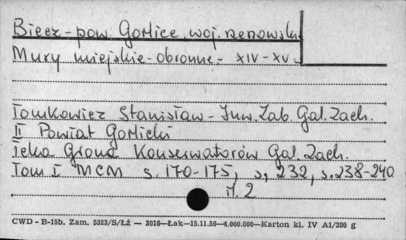 Biecz - pow. Gorlice woj. rzeszowski
Mury miejskie - obronne - XIV - XV w
Tomkowicz Stanisław - Inw. Zab. Gal. Zach.
II Powiat Gorlicki
Teka Grona Konserwatorów Gal. Zach.
Tom I MCM s. 170-175, s, 232, s. 238-240
il. 2
CWD - B-15b. Zam. 5323/S/ŁŻ — 3016—Łak—15.11.56—4.000.000—Karton kl. IV A1/200 g